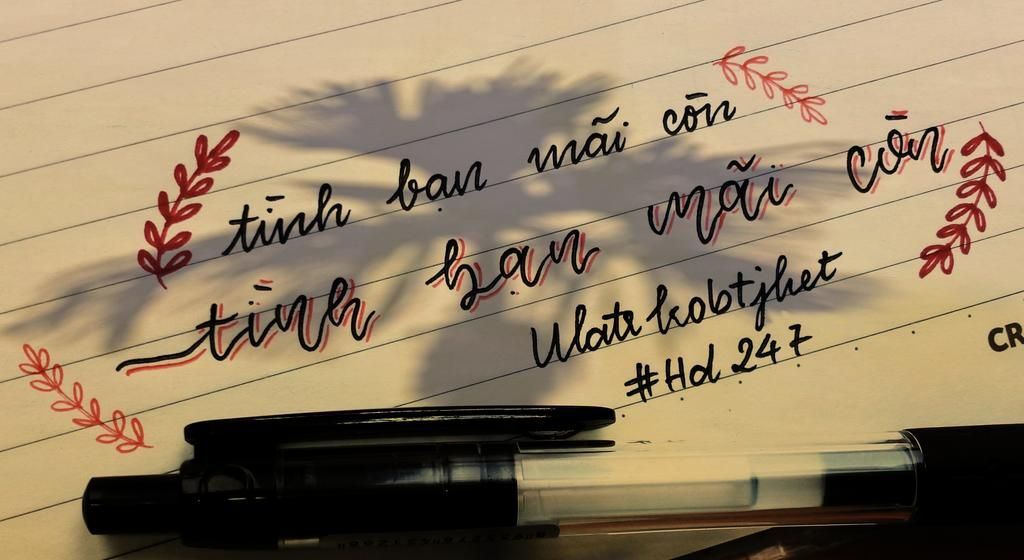 tình bạn mãi còn
tình bạn mãi còn
#Hd 247
CR